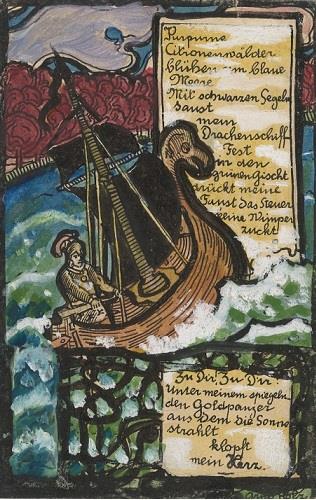 Purpurne
Citronenwälder
blühen um blaue
Moore
Mit schwarzen Segeln
saust
mein
Drachenschiff
Fest
in den
grünen Gischt
drückt meine
Faust das Steuer
keine Wimper
zuckt
Zu Dir! Zu Dir!
Unter meinem spiegeln
den Goldpanzer
aus dem die Sonne
strahlt
klopft
mein Herz.